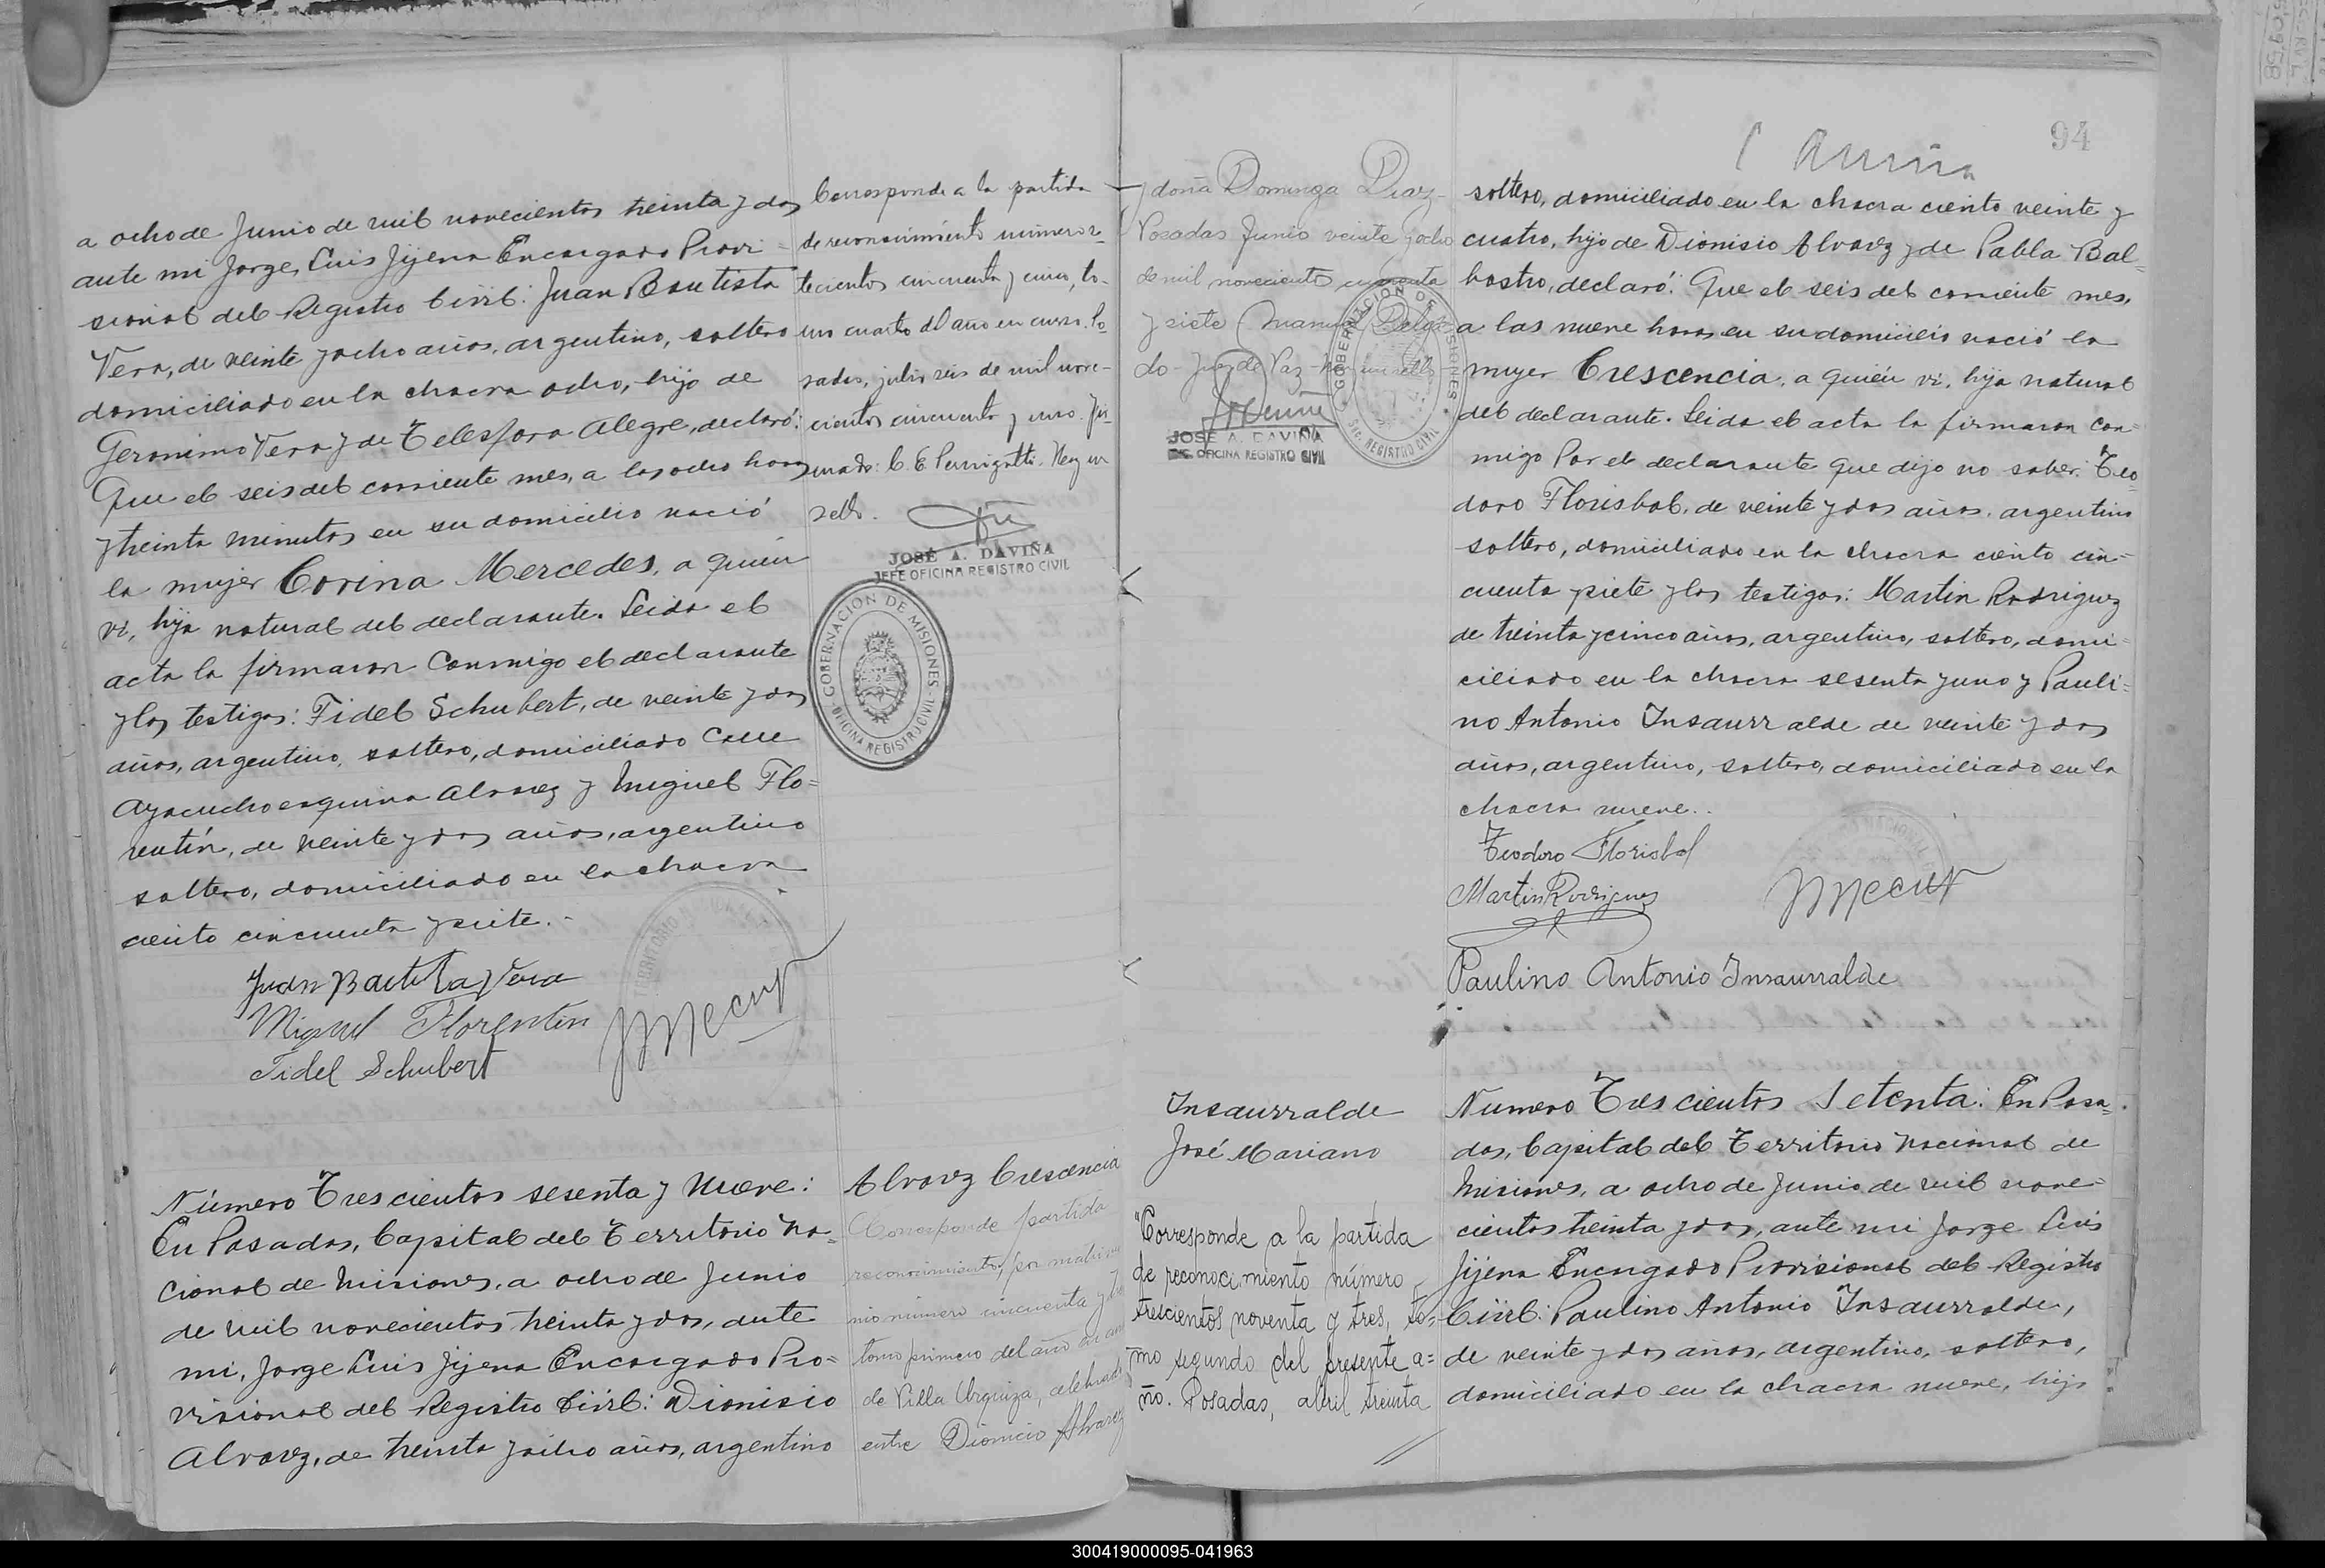 a ocho de Junio de mil novecientos treinta y dos
ante mi Jorge Luis Jijena Encargado Provi=
sional del Registro Civil: Juan Bautista
Vera, de veinte y ocho años, argentino, soltero
domiciliado en la chacra ocho, hijo de
Geronimo Vera y de Telesfora Alegre, declaró:
Que el seis del corriente mes, a las ocho horas
y treinta minutos en su domicilio nació
la mujer Corina Mercedes, a quién
vi, hija natural del declarante. Leida el
acta la firmaron conmigo el declarante
y los testigos: Fidel Schubert, de veinte y dos
años, argentino, soltero, domiciliado Calle
Ayacucho esquina Alvarez y Miguel Flo=
rentín, de veinte y dos años, argentino
soltero, domiciliado en la chacra
ciento cincuenta y siete.-
Juan Bautista Vera
Miguel Florentin
Fidel Schubert
Corresponde a la partida
de reconocimiento número se-
tecientos cincuenta y cinco, to-
mo cuarto del año en curso. Po-
sadas, julio seis de mil nove-
cientos cincuenta y uno. Fir-
mado: C. E. Hay un
sello.
JOSÉ A. DAVIÑA
JEFE OFICINA REGISTRO CIVIL
GOBERNACION DE MISIONES
OFICINA REGISTRO CIVIL
Número Trescientos sesenta y nueve:
En Posadas, Capital del Territorio Na=
cional de Misiones, a ocho de Junio
de mil novecientos treinta y dos, ante
mi, Jorge Luis Jijena Encargado Pro=
visional del Registro Civil: Dionisio
Alvarez, de treinta y ocho años, argentino
Alvarez Crescencia
Corresponde partida
reconocimiento, por matrimo
nio número cincuenta y
tomo primero del año
de Villa Urquiza, celebrado
entre Dionicio Alvarez
94
y doña Dominga Diaz-
Posadas Junio veinte y ocho
de mil novecientos cuarenta
y siete Manuel Delga
do - Juez de Paz - hay un sello -
JOSÉ A. DAVIÑA
OFICINA REGISTRO CIVIL
GOBERNACION DE MISIONES
REGISTRO CIVIL
soltero, domiciliado en la chacra ciento veinte y
cuatro, hijo de Dionisio Alvarez y de Pabla Bal=
bastro, declaró: Que el seis del corriente mes,
a las nueve horas en su domicilio nació la
mujer Crescencia, a quién vi, hija natural
del declarante. Leida el acta la firmaron con=
migo Por el declarante que dijo no saber: Teo=
doro Florisbal, de veinte y dos años, argentino
soltero, domiciliado en la chacra ciento cin=
cuenta y siete y los testigos: Martin Rodriguez
de treinta y cinco años, argentino, soltero, domi=
ciliado en la chacra sesenta y uno y Pauli=
no Antonio Insaurralde de veinte y dos
años, argentino, soltero, domiciliado en la
chacra nueve..
Teodoro Florisbal
Martin Rodriguez
Paulino Antonio Insaurralde
Insaurralde
José Mariano
"Corresponde a la partida
de reconocimiento número
trescientos noventa y tres, to=
mo segundo del presente a=
ño. Posadas, abril treinta
Numero Trescientos Setenta: En Posa=
das, Capital del Territorio Nacional de
Misiones, a ocho de Junio de mil nove=
cientos treinta y dos, ante mi Jorge Luis
Jijena Encargado Provisional del Registro
Civil: Paulino Antonio Insaurralde,
de veinte y dos años, argentino, soltero,
domiciliado en la chacra nueve, hijo
300419000095-041963